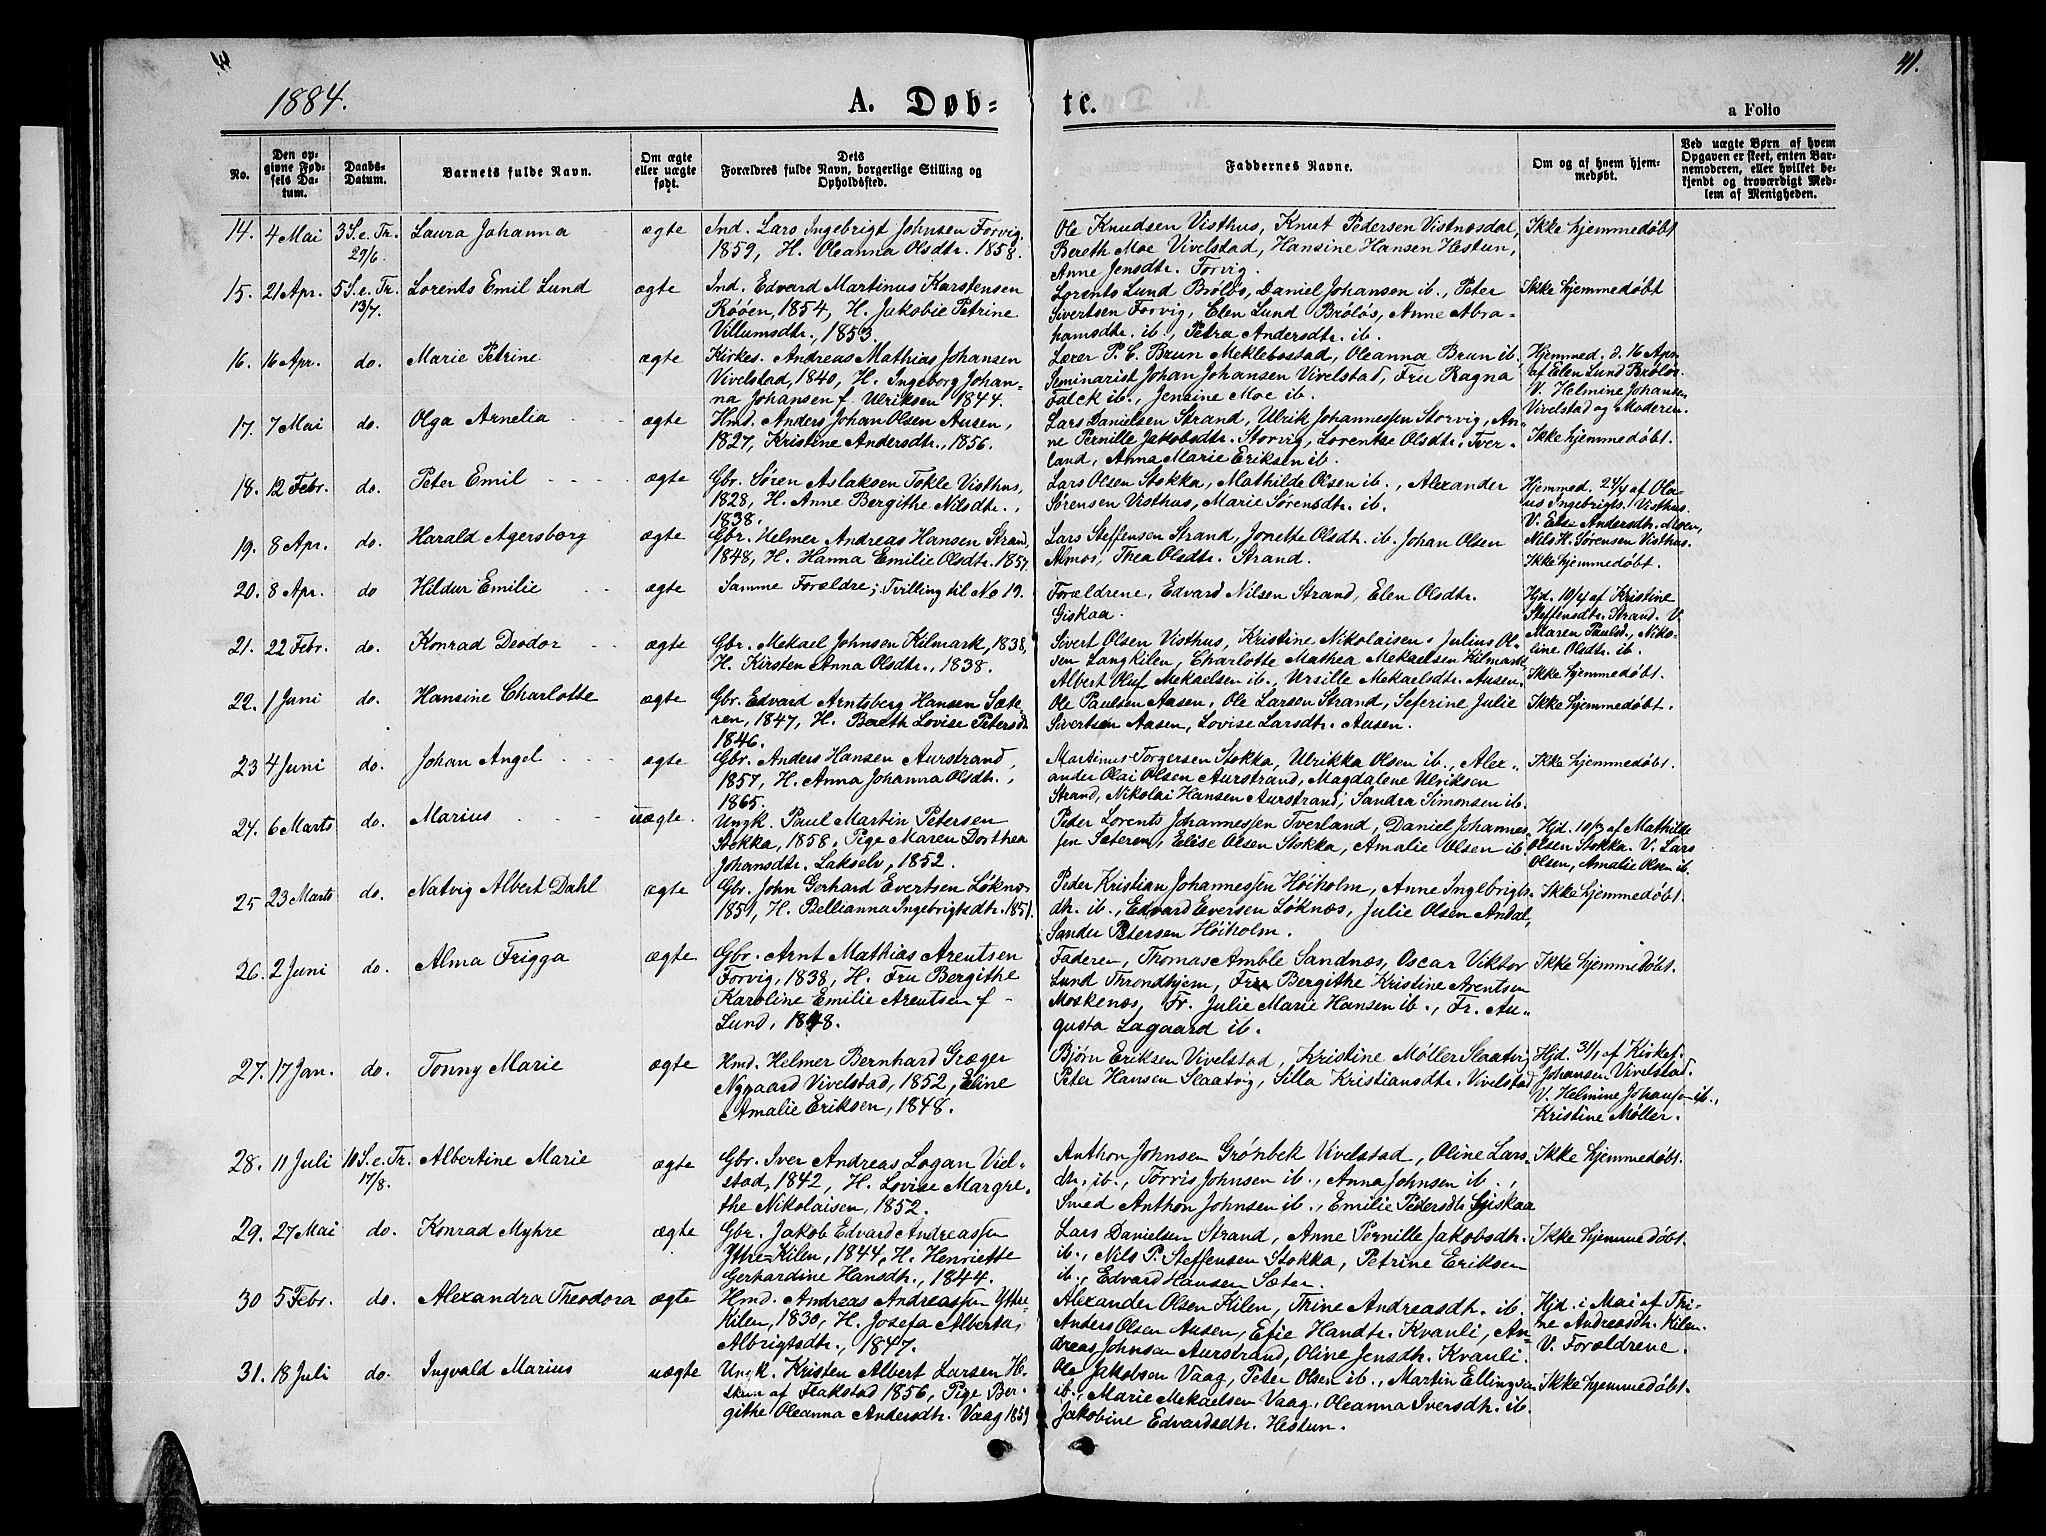 41.
1884.
A. Døb-
te.
a Folio
No.
Den op-
givne Fød-
sels Da-
tum.
Daabs-
Datum.
Barnets fulde Navn.
Om ægte
eller uægte
født.
Dets
Forældres fulde Navn, borgerlige Stilling og
Opholdssted.
Faddernes Navne.
Om og af hvem hjem-
medøbt.
Ved uægte Børn af hvem
Opgaven er skeet, enten Bar-
nemoderen, eller hvilket be-
kjendt og troværdigt Med-
lem af Menigheden.
14. 4 Mai 3 S.e.Tr. 29/6. Laura Johanna ægte
Ind. Lars Ingebrigt Johnsen Forvig
1859, H. Oleanna Olsdtr. 1858.
Ole Knudsen Visthus, Knut Pedersen Vistnesdal,
Bereth Moe Vivelstad, Hansine Hansen Hestun,
Anne Jensdtr. Forvig.
Ikke hjemmedøbt
15. 21 Apr. 5 S.e.Tr. 13/7. Lorents Emil Lund ægte
Ind. Edvard Martinus Karstensen
Røøen, 1854, H. Jakobie Petrine
Villumsdtr., 1853.
Lorents Lund Brøløs, Daniel Johansen ib., Peter
Sivertsen Forvig, Elen Lund Brøløs, Anne Abra-
hamsdtr. ib., Petra Andersdtr. ib.
Ikke hjemmedøbt
16. 16 Apr. do. Marie Petrine ægte
Kirkes. Andreas Mathias Johansen
Vivelstad, 1840, H. Ingeborg Johan-
na Johansen f. Ulriksen 1844.
Lærer P. C. Brun Meklebostad, Oleanna Brun ib.
Seminarist Johan Johansen Vivelstad, Fru Ragna
Falck ib., Jensine Moe ib.
Hjemmed. d. 16 Apr.
af Elen Lund Brøløs.
V. Helmine Johansen
Vivelstad og Moderen.
17. 7 Mai do. Olga Arnelia ægte
Hmd. Anders Johan Olsen Ausen,
1827, Kristine Andersdtr., 1856.
Lars Danielsen Strand, Ulrik Johannessen Storvig, An-
ne Pernille Jakobsdtr. Storvig, Lorentse Olsdtr. Tver-
land, Anna Marie Eriksen ib.
Ikke hjemmedøbt.
18. 12 Febr. do. Peter Emil ægte
Gbr. Søren Aslaksen Tokle Visthus,
1828, H. Anne Bergithe Nilsdtr.,
1838.
Lars Olsen Stokka, Mathilde Olsen ib., Alexander
Sørensen Visthus, Marie Sørensdtr. ib.
Hjemmed. 24/4 af Ola-
us Ingebrigts. Visthus.
V. Else Andersdtr. Moen,
Nils H. Sørensen Visthus.
19. 8 Apr. do. Harald Agersborg ægte
Gbr. Helmer Andreas Hansen Strand
1848, H. Hanna Emilie Olsdtr. 1857.
Lars Steffensen Strand, Jonette Olsdtr. ib. Johan Olsen
Almos, Thea Olsdtr. Strand.
Ikke hjemmedøbt.
20. 8 Apr. do Hildur Emilie ægte
Samme Forældre; Tvilling til No 19.
Forældrene, Edvard Nilsen Strand, Elen Olsdtr.
Giskaa.
Hjd. 10/4 af Kristine
Steffensdtr. Strand. V.
Maren Paulsd., Niko-
line Olsdtr. ib.
21. 22 Febr. do. Konrad Deodor ægte
Gbr. Mekael Johnsen Kilmark, 1838,
H. Kirsten Anna Olsdtr., 1838.
Sivert Olsen Visthus, Kristine Nikolaisen. Julius Ol-
sen Langkilen, Charlotte Mathea Mekaelsen Kilmark,
Albert Oluf Mekaelsen ib., Ursille Mekaelsdtr. Ausen.
Ikke hjemmedøbt.
22. 1 Juni do. Hansine Charlotte ægte
Gbr. Edvard Arntsberg Hansen Sæte-
ren, 1847, H. Bereth Lovise Petersdtr.
1846.
Ole Paulsen Aasen, Ole Larsen Strand, Seferine Julie
Sivertsen Aasen, Lovise Larsdtr. Ausen.
Ikke hjemmedøbt.
23 4 Juni do. Johan Angel ægte
Gbr. Anders Hansen Aurstrand,
1857, H. Anna Johanna Olsdtr.,
1865.
Martinus Torgersen Stokka, Ulrikka Olsen ib., Alex-
ander Olai Olsen Aurstrand, Magdalene Ulriksen
Strand, Nikolai Hansen Aurstrand, Sandra Simonsen ib.
Ikke hjemmedøbt.
24. 6 Marts do. Marius uægte.
Ungk. Paul Martin Petersen
Stokka, 1858, Pige Maren Dorthea
Johansdtr. Lakselv, 1852.
Peder Lorents Johannessen Tverland, Daniel Johannes-
sen Sæteren, Elise Olsen Stokka, Amalie Olsen ib.
Hjd. 10/3 af Mathilde
Olsen Stokka. V. Lars
Olsen, Amalie Olsen ib.
25 23 Marts do. Natvig Albert Dahl ægte
Gbr. John Gerhard Evertsen Løknæs
1851, H. Bellianna Ingebrigtsdtr. 1851.
Peder Kristian Johannessen Høiholm, Anne Ingebrigts-
dtr. ib., Edvard Eversen Løknæs, Julie Olsen Andal,
Sander Petersen Høiholm.
Ikke hjemmedøbt.
26. 2 Juni do. Alma Frigga ægte
Gbr. Arnt Mathias Arentsen
Forvig, 1838, H. Fru Bergithe
Karoline Emilie Arentsen f.
Lund, 1848.
Faderen, Thomas Amble Sandnæs, Oscar Viktor
Lund Throndhjem, Fru Bergithe Kristine Arentsen
Moskenæs, Fr. Julie Marie Hansen ib., Fr. Au-
gusta Lagaard ib.
Ikke hjemmedøbt.
27. 17 Jan. do. Tonny Marie ægte
Hmd. Helmer Bernhard Græger
Nygaard Vivelstad, 1852, Eline
Amalie Eriksen, 1848.
Bjørn Eriksen Vivelstad, Kristine Møller Slaatvig
Peter Hansen Slaatvig, Silla Kristiansdtr. Vivelstad
Hjd. 31/1 af Kirkes.
Johansen Vivelstad.
V. Helmine Johansen ib.,
Kristine Møller.
28. 11 Juli 10 S.e.Tr. 17/8. Albertine Marie ægte
Gbr. Iver Andreas Logan Viel-
stad, 1842, H. Lovise Margre-
the Nikolaisen, 1852.
Anthon Johnsen Grønbek Vivelstad, Oline Lars-
dtr. ib., Torris Johnsen ib., Anna Johnsen ib.,
Smed Anthon Johnsen ib., Emilie Pedersdtr. Giskaa
Ikke hjemmedøbt.
29. 27 Mai do. Konrad Myhre ægte
Gbr. Jakob Edvard Andreassen
Ytre-Kilen, 1844, H. Henriette
Gerhardine Hansdtr., 1844.
Lars Danielsen Strand, Anne Pernille Jakobsdtr.
ib., Nils P. Steffensen Stokka, Petrine Eriksen
ib., Edvard Hansen Sæter.
Ikke hjemmedøbt.
30 5 Febr. do. Alexandra Theodora ægte
Hmd. Andreas Andreassen Ytre-
Kilen, 1830, H. Josefa Alberta
Albrigtsdtr., 1847.
Alexander Olsen Kilen, Trine Andreasdtr. ib.
Anders Olsen Ausen, Efie Handtr. Kvanli, An-
dreas Johnsen Aurstrand, Oline Jensdtr. Kvanli.
Hjd. i Mai af Tri-
ne Andreasdtr. Kilen.
V. Forældrene.
31. 18 Juli do. Ingvald Marius uægte
Ungk. Kristen Albert Larsen He-
stun af Flakstad 1856, Pige Ber-
githe Oleanna Andersdtr. Vaag 1859
Ole Jakobsen Vaag, Peter Olsen ib., Martin Ellingsen
ib., Marie Mekaelsen Vaag, Oleanna Iversdtr. ib.
Jakobine Edvardsdtr. Hestun.
Ikke hjemmedøbt.